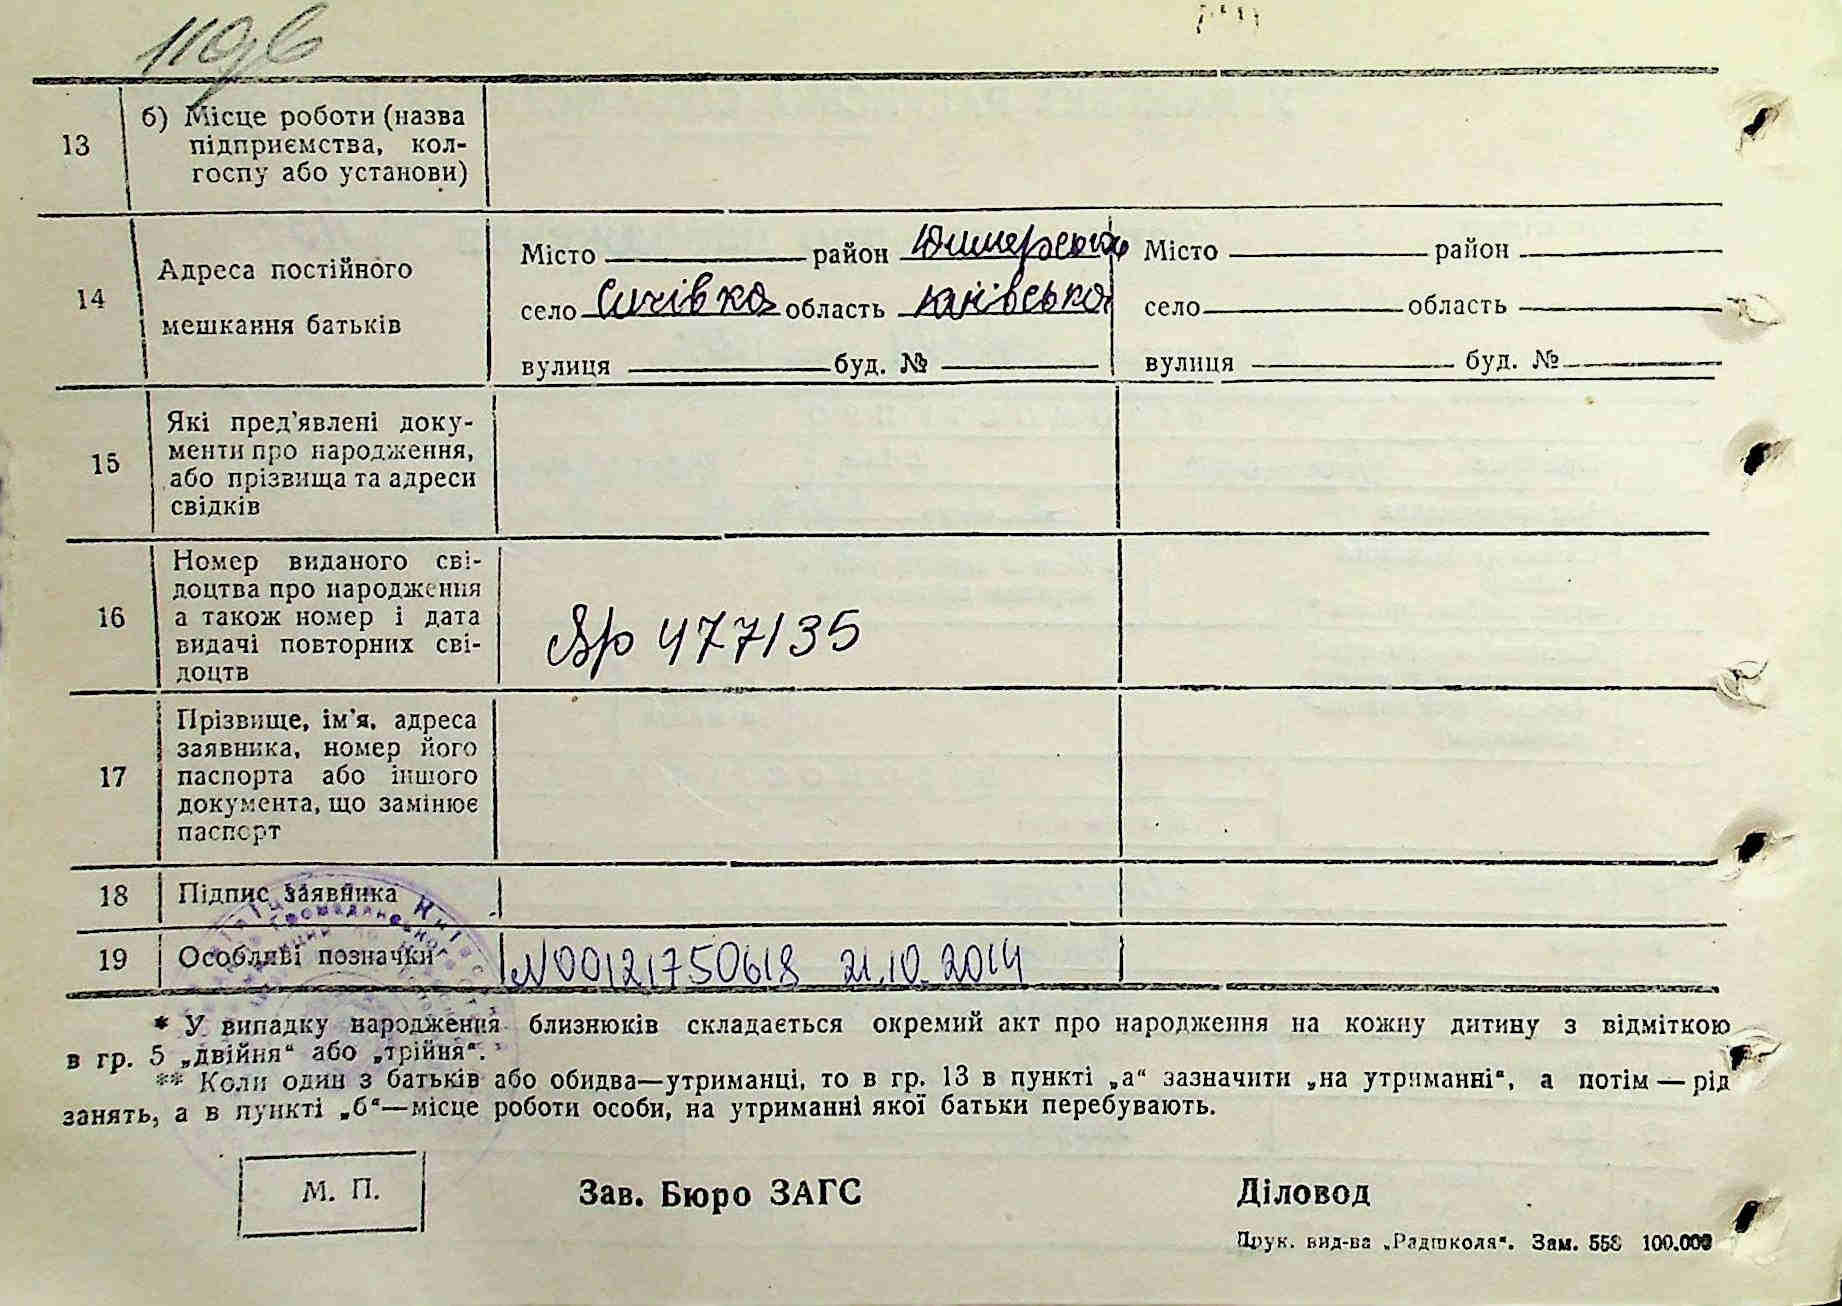 119б
13
б) Місце роботи (назва
підприємства, кол-
госпу або установи)
14
Адреса постійного
мешкання батьків
Місто район Димерський
село Сичівка область Київська
вулиця буд. №
Місто район
село область
вулиця буд. №
15
Які пред'явлені доку-
менти про народження,
або прізвища та адреси
свідків
16
Номер виданого сві-
доцтва про народження
а також номер і дата
видачі повторних сві-
доцтв
Яр 477135
17
Прізвище, ім'я, адреса
заявника, номер його
паспорта або іншого
документа, що замінює
паспорт
18
Підпис заявника
19
Особливі позначки
N00121750618 21.10.2014
* У випадку народження близнюків складається окремий акт про народження на кожну дитину з відміткою
в гр. 5 „двійня“ або „трійня“.
** Коли один з батьків або обидва—утриманці, то в гр. 13 в пункті „а“ зазначити „на утриманні“, а потім — рід
занять, а в пункті „б“—місце роботи особи, на утриманні якої батьки перебувають.
М. П.
Зав. Бюро ЗАГС
Діловод
Друк. вид-ва „Радшкола“. Зам. 558 100.000